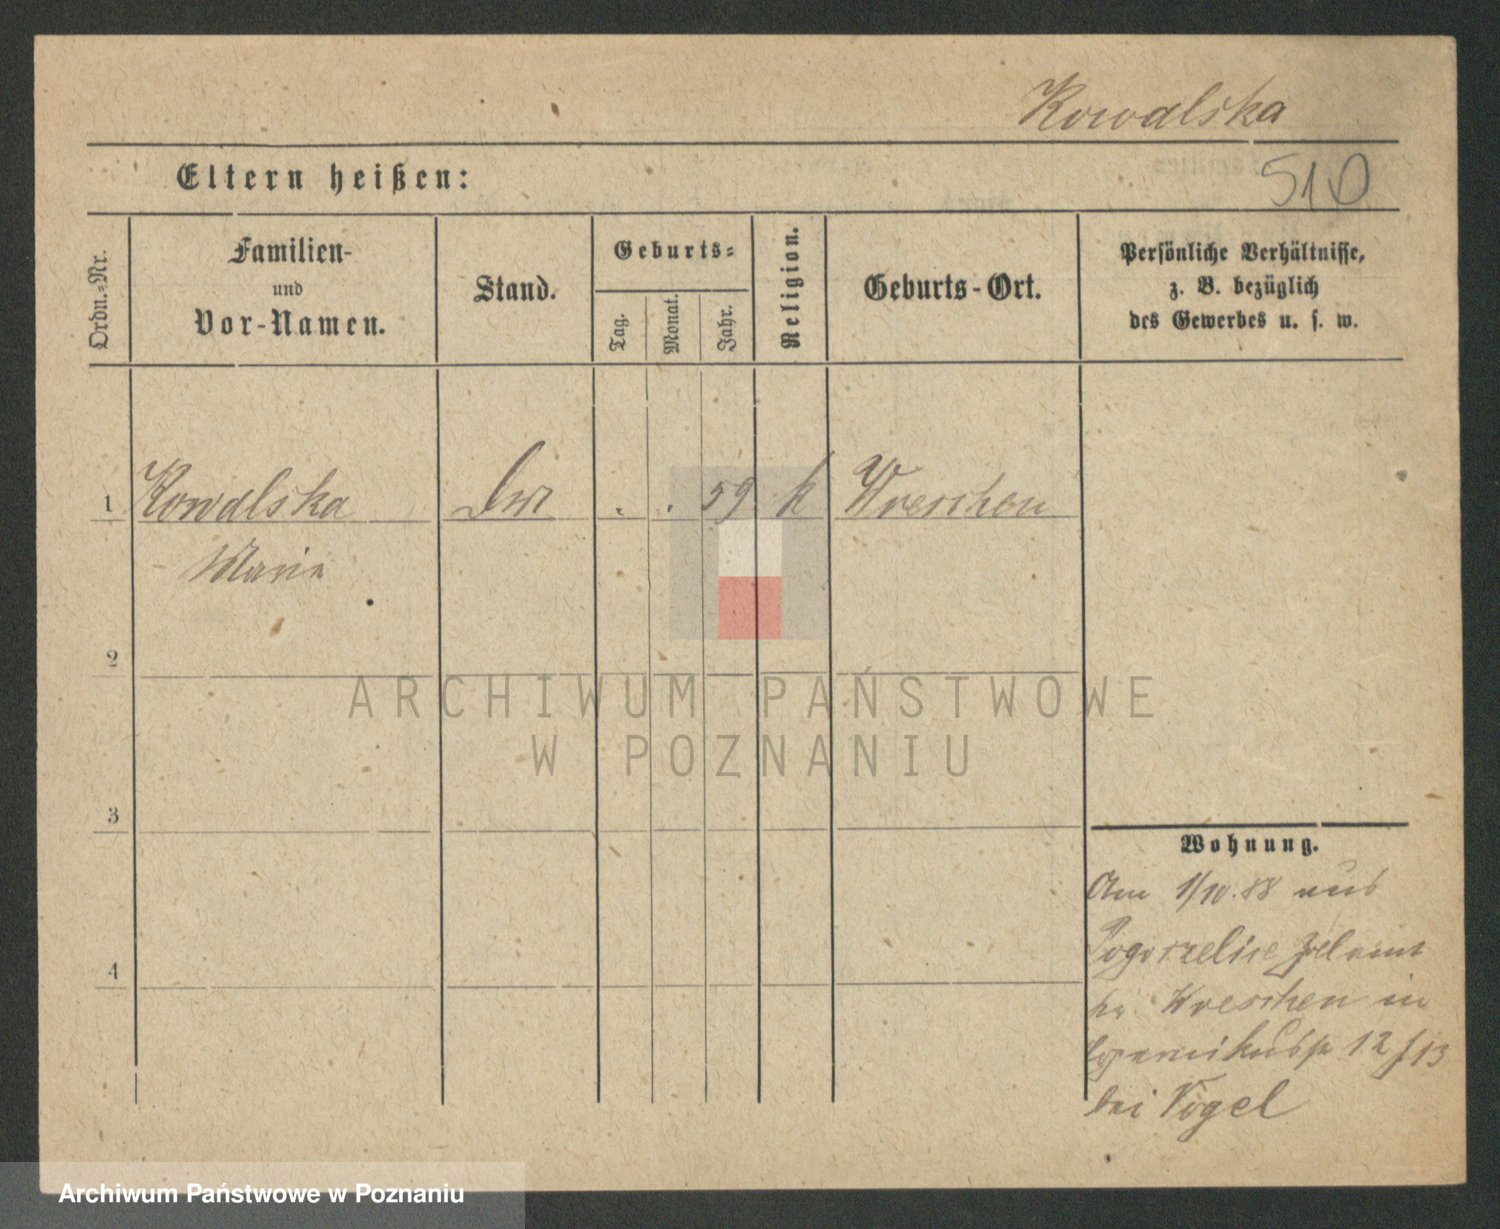 Kowalska
Eltern heißen:
510
Ordn.-Nr.
Familien-
und
Vor-Namen.
Stand.
Geburts-
Tag.
Monat.
Jahr.
Religion.
Geburts-Ort.
Persönliche Verhältnisse,
z. B. bezüglich
des Gewerbes u. s. w.
1 Kowalska . . 59 k Wreschen
Marie
2
3
4
ARCHIWUM PAŃSTWOWE
W POZNANIU
Wohnung.
Am 1/10.88 aus
Pogorzelice
Kr. Wreschen in
12/13
bei Vogel
Archiwum Państwowe w Poznaniu